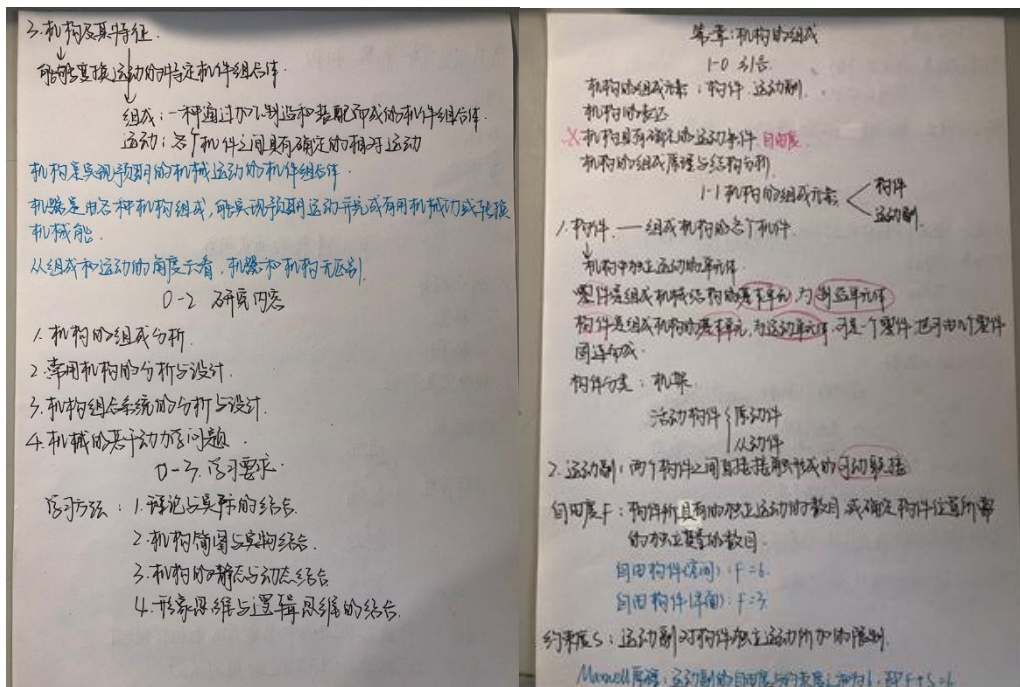 3.机构及其特征.
能够变换运动的特定机件组合体.
组成:一种通过加工制造和装配而成的机件组合体.
运动:各个机件之间具有确定的相对运动
机构是实现预期的机械运动的机件组合体.
机器是由各种机构组成,能实现预期运动并完成有用机械功或转换
机械能.
从组成和运动的角度去看,机器和机构无区别.
0-2 研究内容
1.机构的组成分析.
2.常用机构的分析与设计.
3.机构组合系统的分析与设计.
4.机械的若干动力学问题.
0-3.学习要求.
学习方法:1.理论与实际的结合.
2.机构简图与实物结合.
3.机构的静态与动态结合.
4.形象思维与逻辑思维的结合.
第一章:机构的组成
1-0 引言.
机构的组成元素:构件.运动副.
机构的表达
机构具有确定的运动条件.自由度.
机构的组成原理与结构分析.
1-1 机构的组成元素 构件
运动副.
1.构件.——组成机构的各个机件.
机构中独立运动的单元体.
零件是组成机械结构的基本单元,为制造单元体
构件是组成机构的基本单元,为运动单元体,可是一个零件也可由几个零件
固连而成.
构件分类:机架.
活动构件 原动件
从动件
2.运动副:两个构件之间直接接触形成的可动联接
自由度F:构件所具有的独立运动的数目或确定构件位置所需
的独立变量的数目.
自由构件(空间):F=6.
自由构件(平面):F=3.
约束度S:运动副对构件独立运动所加的限制.
Maxwell原理:运动副的自由度与约束度之和为6,即F+S=6